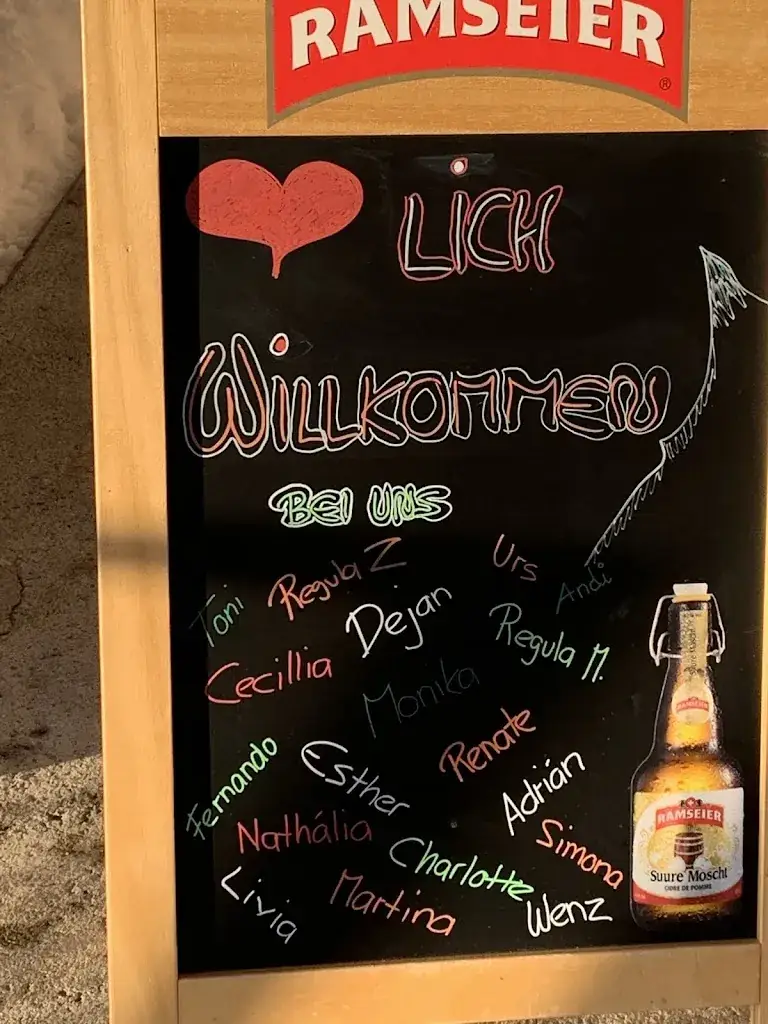 RAMSEIER
®
LICH
WILLKOMMEN
BEI UNS
Toni
Regula Z
Urs
Andi
Dejan
Regula M.
Cecillia
Monika
Renate
Fernando
Esther
Adrián
Nathália
Simona
Charlotte
Livia
Martina
Wenz
RAMSEIER
RAMSEIER
Suure Moscht
CIDRE DE POMME